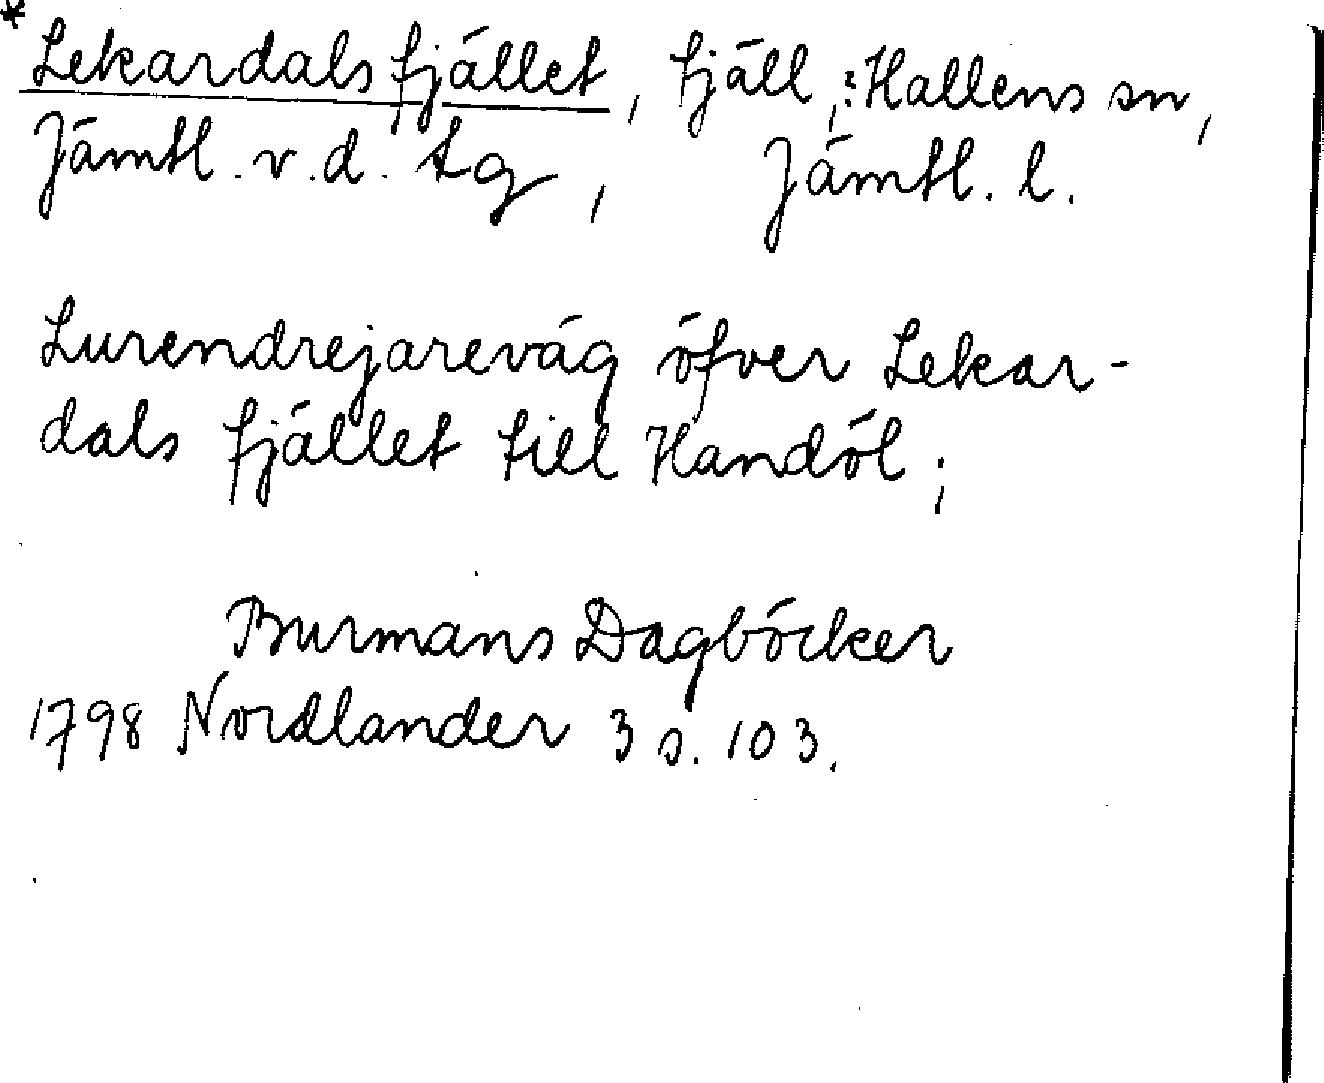 * Lekardalsfjället, fjäll, ?Hallens sn,
Jämtl. v. d. tg, Jämtl. l.
Lurendrejareväg öfver Lekar-
dals fjället till Handöl;
Burmans Dagböcker
1798 Nordlander 3 s. 103.